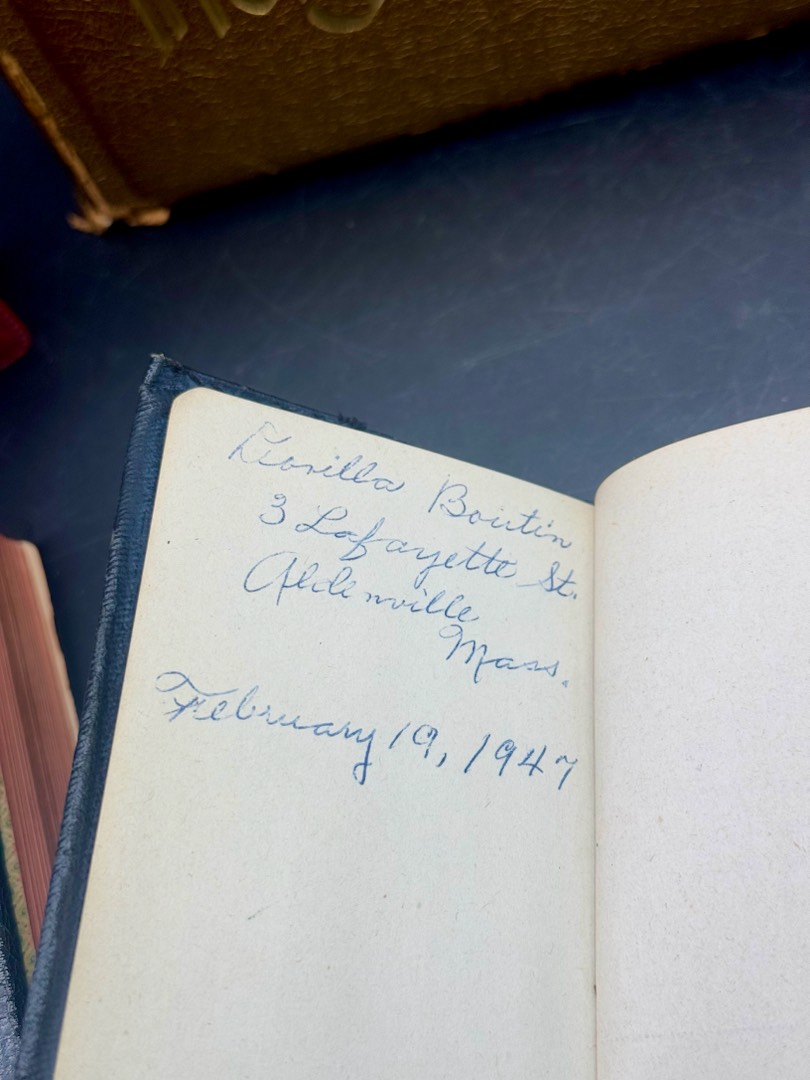 Boutin
3 Lafayette St.
Aldenville
Mass.
February 19, 1947